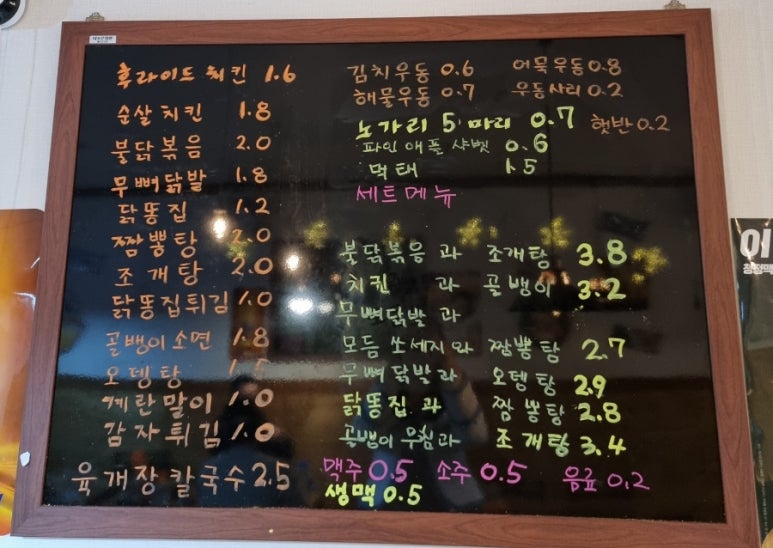 후라이드 치킨 1.6
순살치킨 1.8
불닭볶음 2.0
무뼈닭발 1.8
닭똥집 1.2
짬뽕탕 2.0
조개탕 2.0
닭똥집튀김 1.0
골뱅이소면 1.8
오뎅탕 1.5
계란말이 1.0
감자튀김 1.0
육개장칼국수 2.5
김치우동 0.6 어묵우동 0.8
해물우동 0.7 우동사리 0.2
노가리 5마리 0.7 햇반 0.2
파인애플 샤벳 0.6
먹태 1.5
세트메뉴
불닭볶음과 조개탕 3.8
치킨과 골뱅이 3.2
무뼈닭발과
모듬쏘세지와 짬뽕탕 2.7
무뼈닭발과 오뎅탕 2.9
닭똥집과 짬뽕탕 2.8
골뱅이무침과 조개탕 3.4
맥주 0.5 소주 0.5 음료 0.2
생맥 0.5